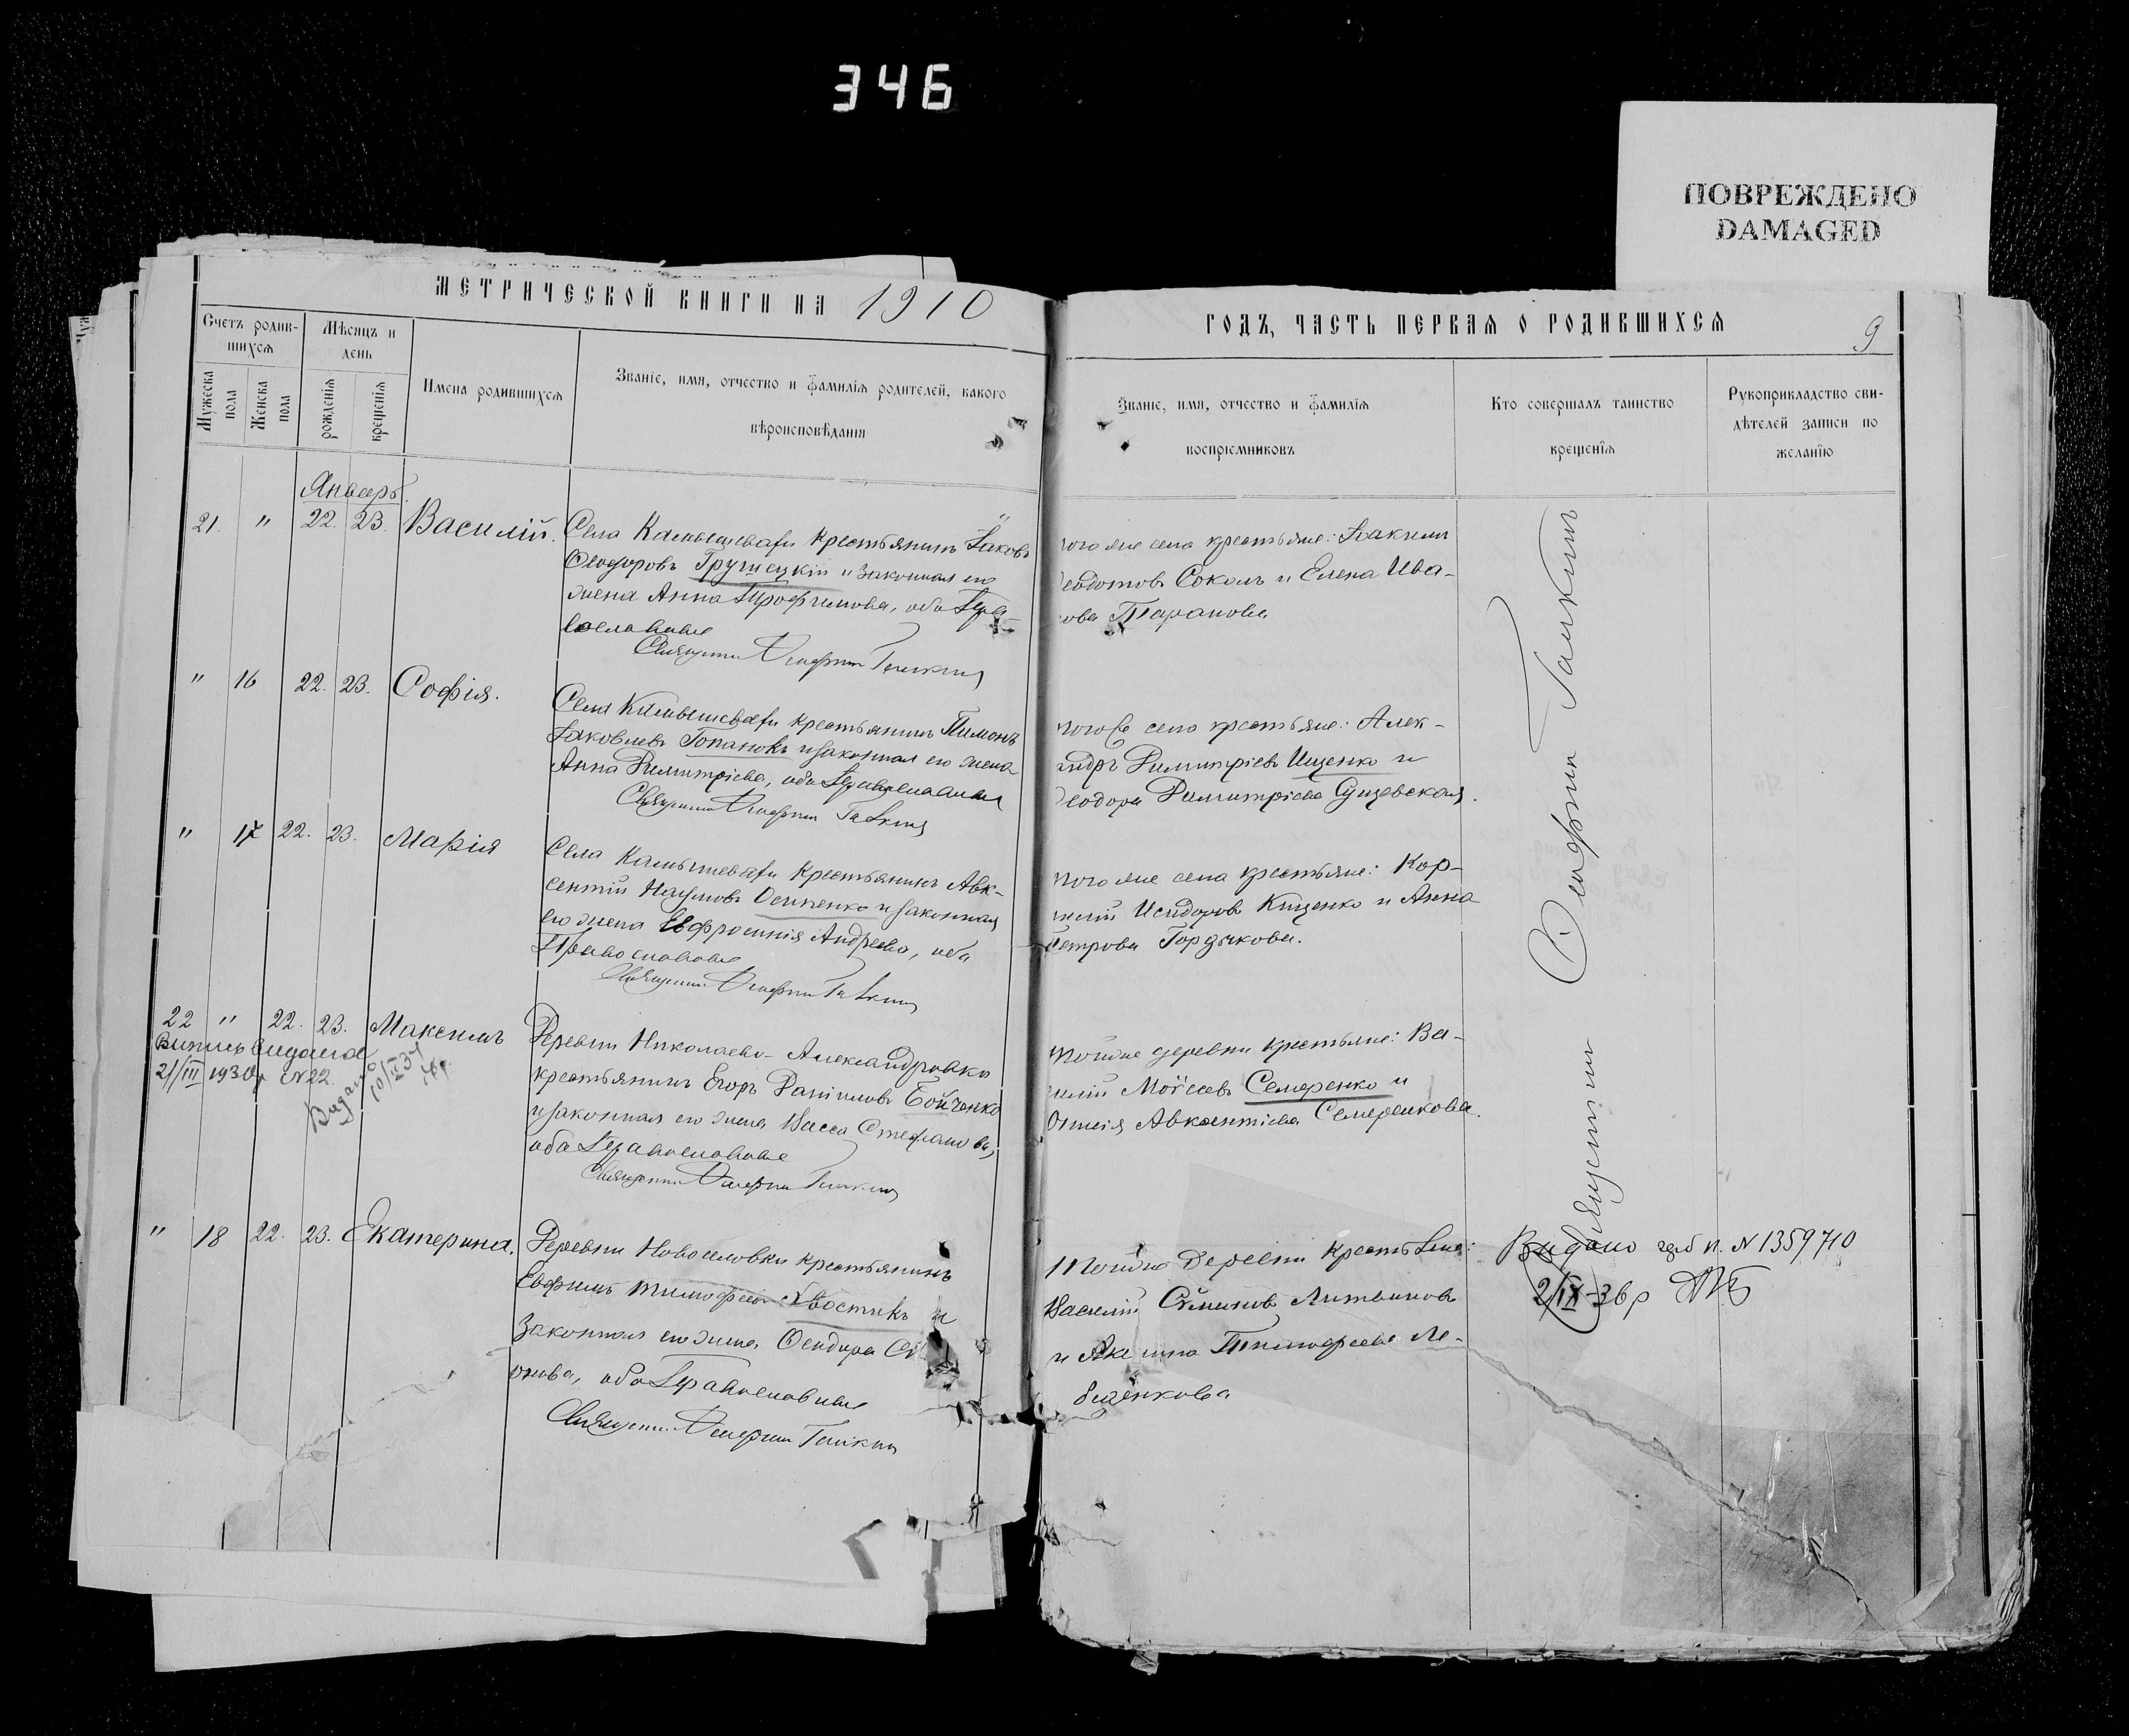 346
ПОВРЕЖДЕНО
DAMAGED
МЕТРИЧЕСКОЙ КНИГИ НА 1910
ГОДЪ, ЧАСТЬ ПЕРВАЯ О РОДИВШИХСЯ
9
Счетъ родив-
шихся
Мѣсяцъ и
день
Мужеска
пола
Женска
пола
рожденія
крещенія
Имена родившихся
Званіе, имя, отчество и фамилія родителей, какого
вѣроисповѣданія
Званіе, имя, отчество и фамилія
воспріемниковъ
Кто совершалъ таинство
крещенія
Рукоприкладство сви-
дѣтелей записи по
желанію
Январь.
21. " 22. 23. Василій.
Села Камышевахи крестьянинъ Іаковъ
Ѳеодоровъ Грушецкій и законная его
жена Анна Трофимова, оба Пра
вославные
Священникъ Онисифоръ Галкинъ
того же села крестьяне: Іакимъ
Ѳеодотовъ Соколъ и Елена Ива-
нова Таранова
" 16 22. 23. Софія.
Села Камышевахи крестьянинъ Тимонъ
Іаковлевъ и законная его жена
Анна Димитріева, оба Православные
Священникъ Онисифоръ Галкинъ
того же села крестьяне: Алек-
андръ Димитріевъ Ищенко и
Ѳеодора Димитріева
" 17 22. 23. Марія
Села Камышевахи крестьянинъ Авк-
сентій Наумовъ Осипенко и законная
его жена Евфросинія Андреева, оба
Православные
Священникъ Галкинъ
того же села крестьяне: Кор-
нилій Исидоровъ Кищенко и Анна
Петрова Гордикова.
22 " 22. 23. Максимъ
Випись видана
21/III 1930р N22.
Видано
10/II 37
Деревни Николаево-Александровки
крестьянинъ Егоръ Даниловъ Бойченко
и законная его жена Васса Стефанова,
оба Православные
Священникъ Галкинъ
тойже деревни крестьяне: Ва-
силій Моѵсеевъ Семеренко и
Авксентіева Семеренкова.
" 18 22. 23. Екатерина.
Деревни Новоселовки крестьянинъ
Евфимъ Тимофеевъ Хвостикъ и
законная его жена Ѳеодора
онова, оба Православные
Священникъ Галкинъ
Тойже деревни крестьяне:
Василій Симоновъ Литвиновъ
и Акилина Тимофеева Ле-
бщенкова
Священникъ Галкинъ
Видано N 1359710
2/IX-36р